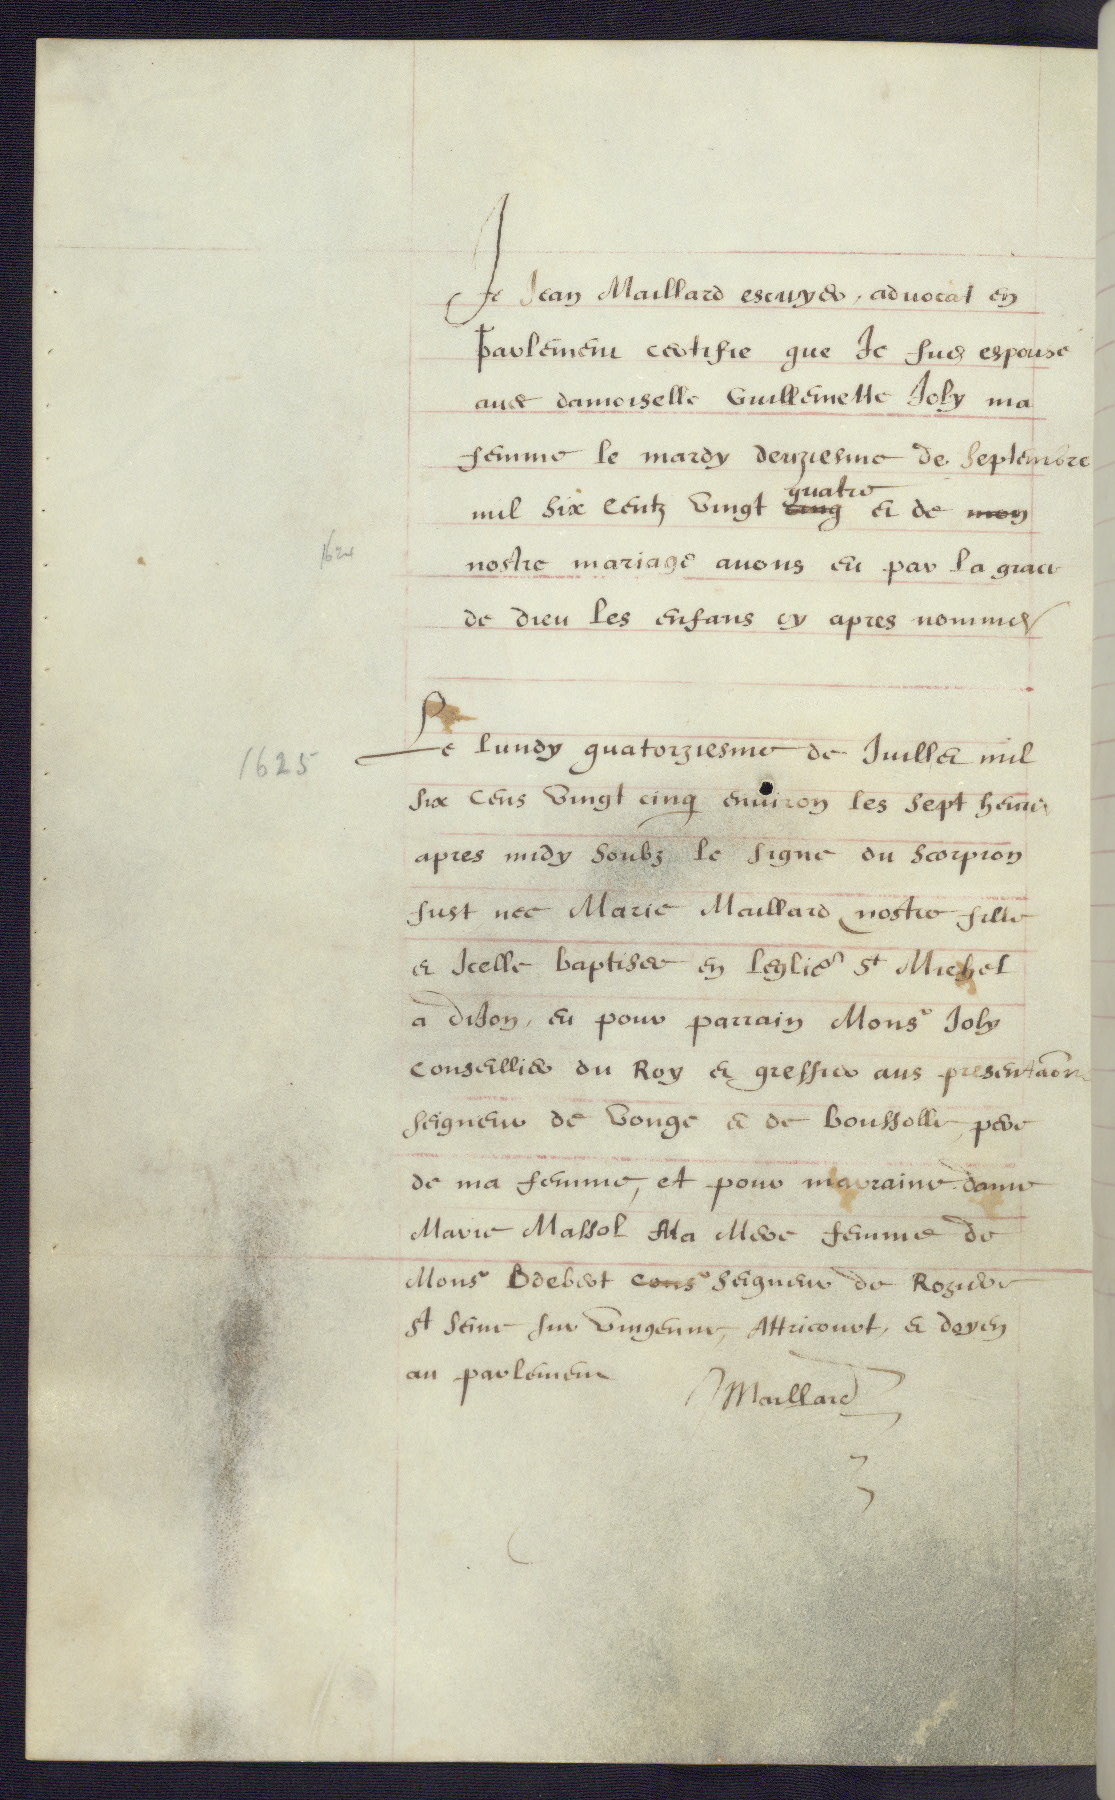 Je Jean Maillard escuyer, advocat en
parlement certifie que Je fus espouse
avec damoiselle Guillemette Joly ma
femme le mardy deuziesme de Septembre
quatre
mil six Centz vingt cinq et de mon
1624
nostre mariage avons eu par la grace
de dieu les enfans cy apres nommes
1625
Le lundy quatorziesme de Juillet mil
six Cens vingt cinq environ les sept heures
apres midy soubz le signe du Scorpion
fust nee Marie Maillard nostre fille
et Jcelle baptisee en leglise St Michel
a diJon, eu pour parrain Monsr Joly
Conseillier du Roy et greffier aus presentaons
seigneur de Vonge et de boussolle pere
de ma femme, et pour marraine dame
Marie Massol Ma Mere femme de
Monsr Bdebert Consr seigneur de Rosiere
St Seine sur Vingenne, Attricourt, et doyen
au parlement
Maillard